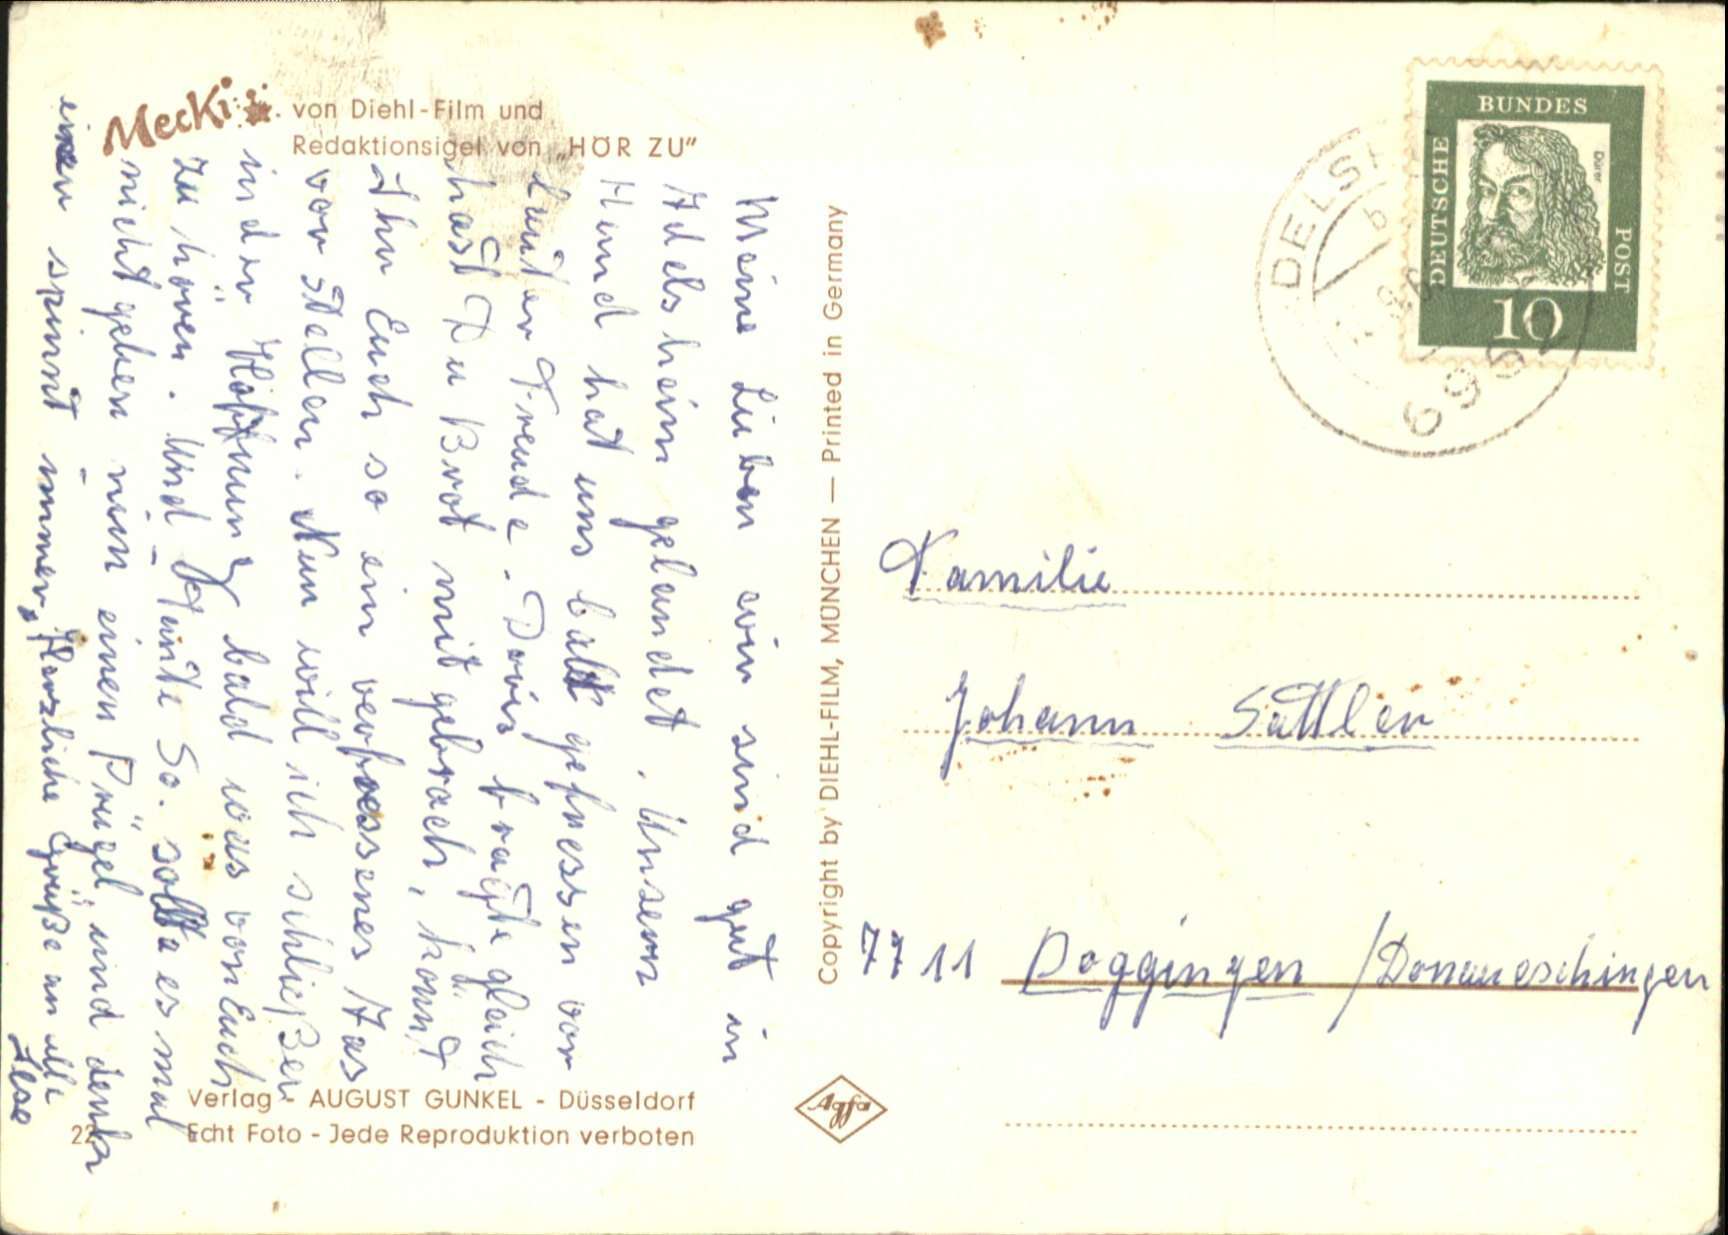 Mecki
von Diehl-Film und
Redaktionsigel von „HÖR ZU"
Meine Lieben wir sind gut in
Adelsheim gelandet. Unsern
Hund hat uns bald gefressen vor
lauter Freude. Doris fragte gleich
hast Du Brot mitgebrach, kömt
Ihr Euch so ein verfressenes Aas
vorstellen. Nun will ich schließen
in der Höffnung bald was von Euch
zu hören. Und Heinte So. sollte es mal
nicht gehen nim einen Prügel, und denk
einer spinnt immer, Herzliche Grüße an alle
Ilse
Verlag - AUGUST GUNKEL - Düsseldorf
22
Echt Foto - Jede Reproduktion verboten
Copyright by DIEHL-FILM, MÜNCHEN — Printed in Germany
Agfa
DEUTSCHE
BUNDES
POST
Dürer
10
ADELSH
b
6962
Familie
Johann Sattler
7711 Döggingen / Donaueschingen